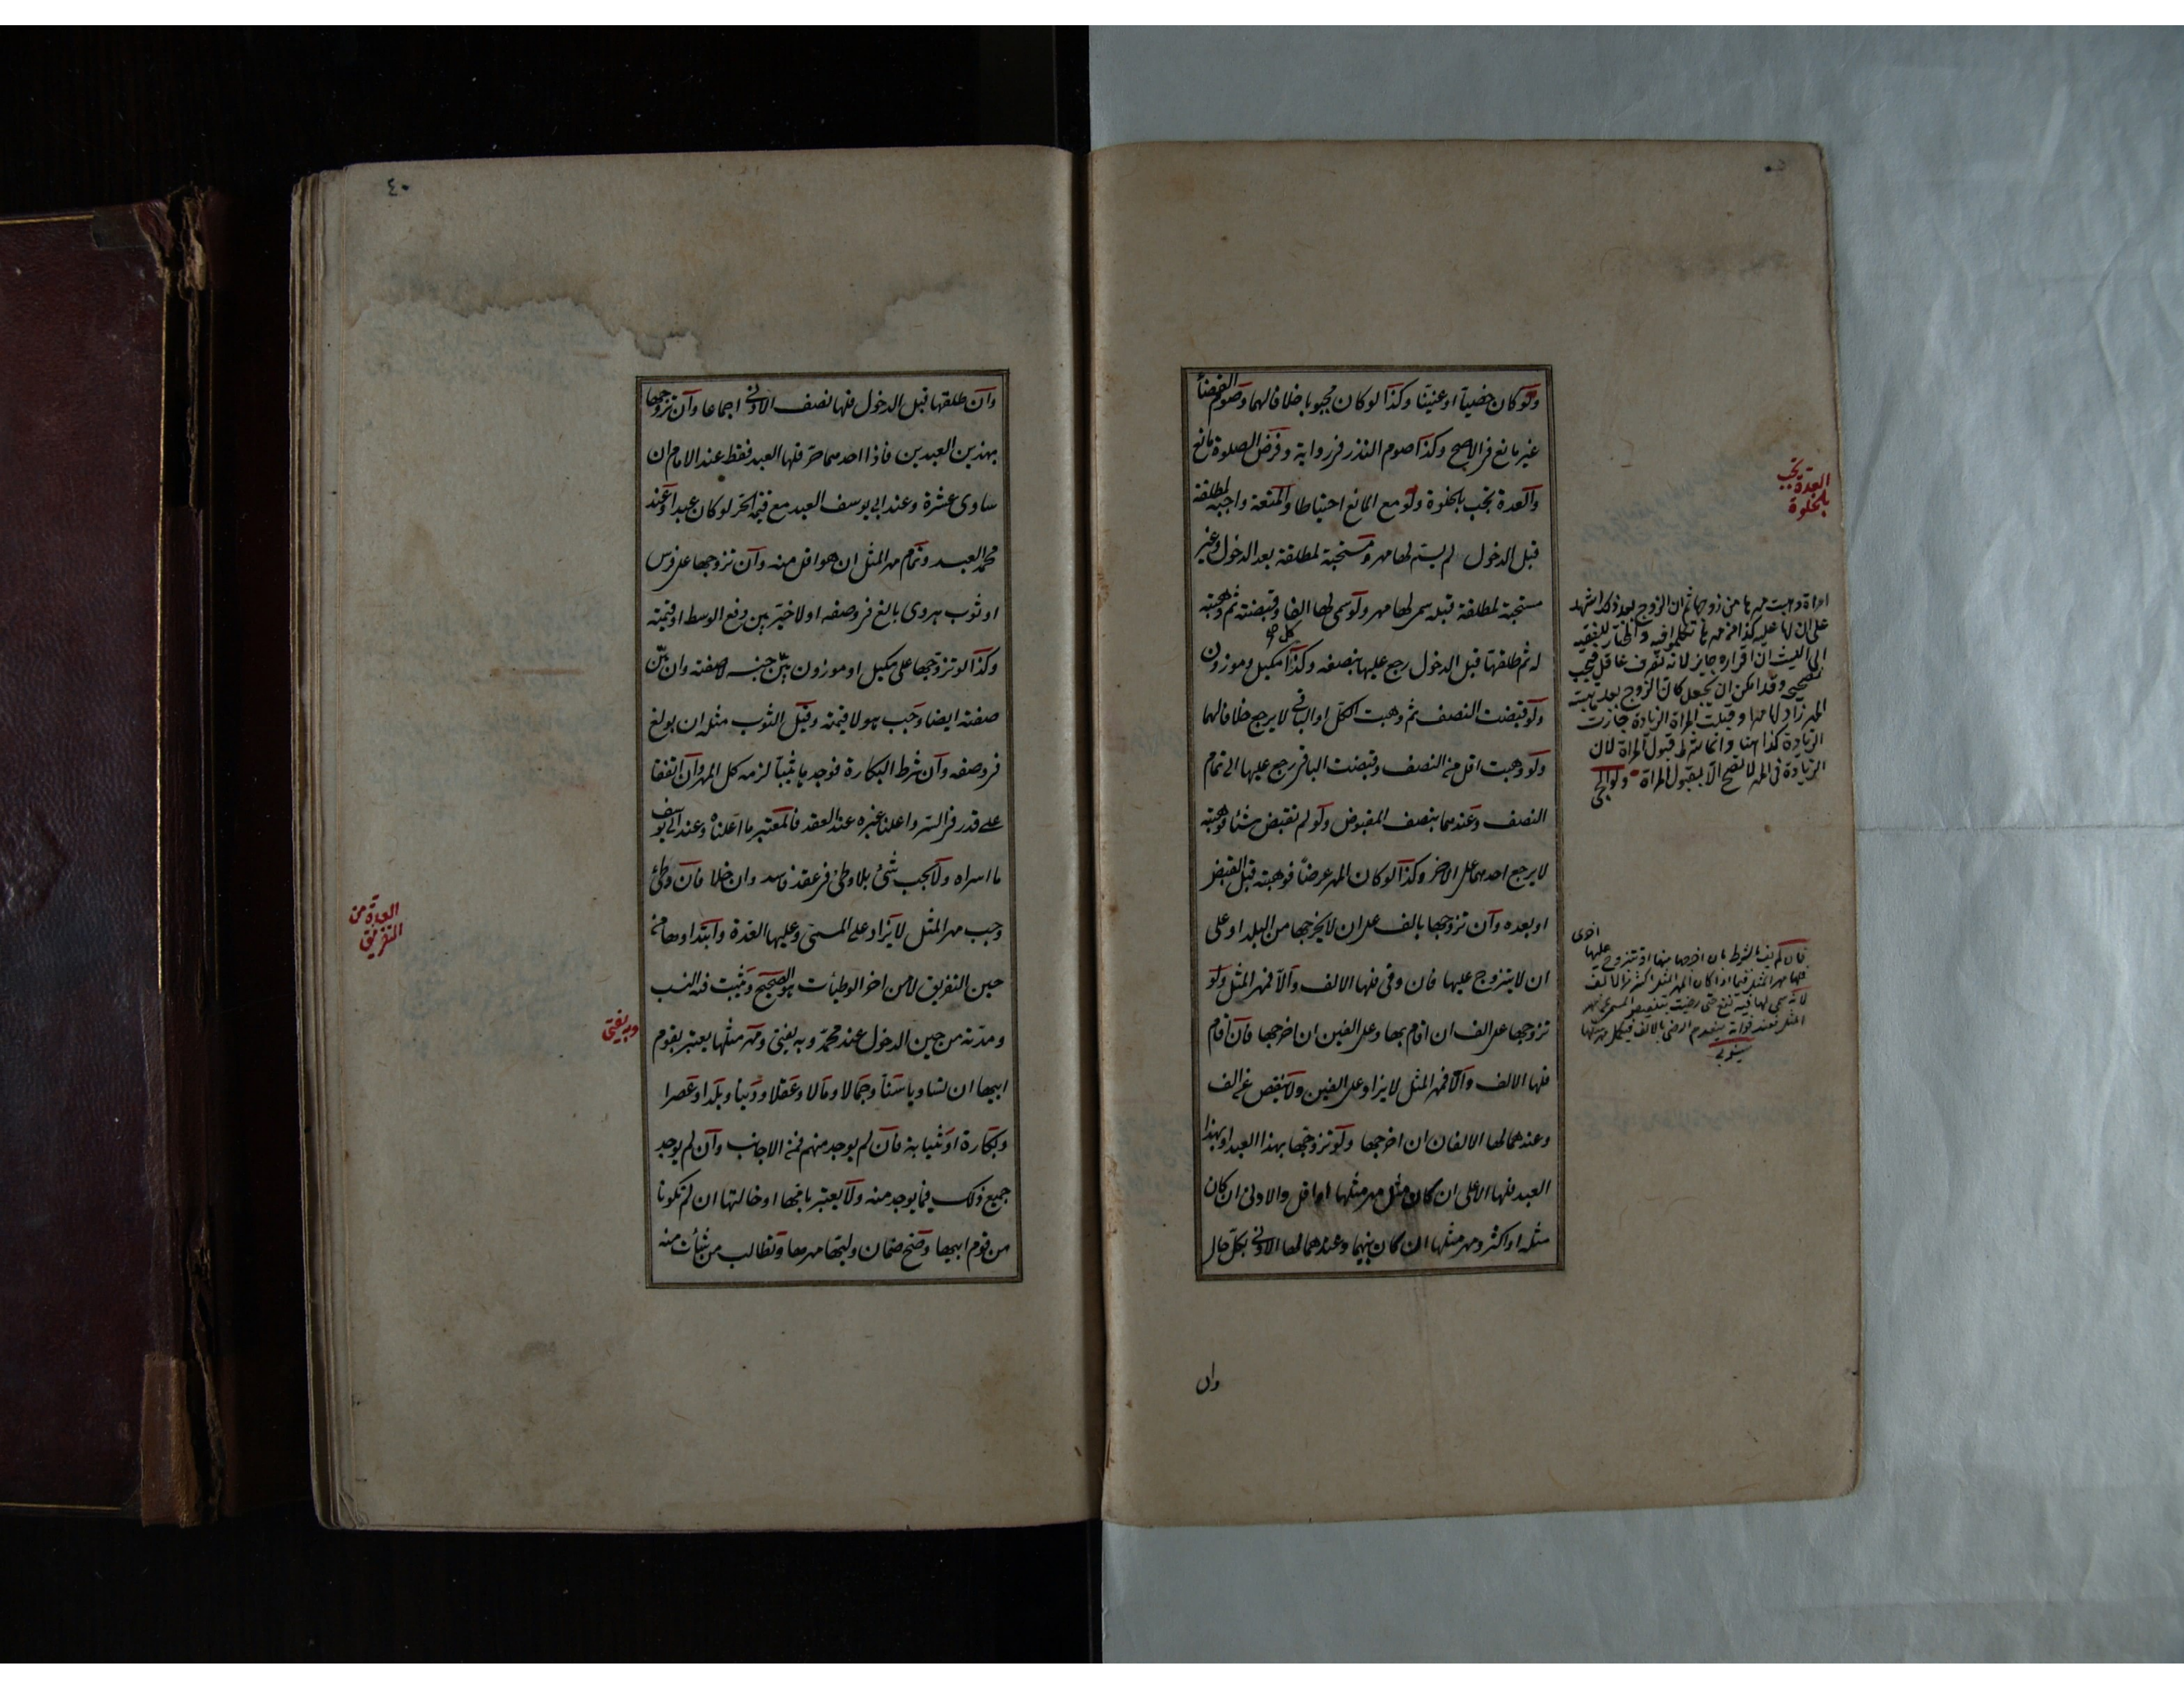 ولو كان خصيا او عنينا وكذا لو كان مجبوبا خلافا لهما وصوم القضاء
غير مانع فى الاصح وكذا صوم النذر فى رواية وفرض الصلوة مانع
والعدة تجب بالخلوة ولو مع المانع احتياطا والمتعة واجبة لمطلقة
قبل الدخول لم يسم لها مهر ومستحبة لمطلقة بعد الدخول وغير
مستحبة لمطلقة قبله سمى لها مهر ولو سمى لها الفا وقبضته ثم وهبته
له ثم طلقها قبل الدخول رجع عليها بنصفه وكذا كل مكيل وموزون
ولو قبضت النصف ثم وهبت الكل او الباقى لا يرجع خلافا لهما
ولو وهبت اقل من النصف وقبضت الباقى رجع عليها الى تمام
النصف وعندهما بنصف المقبوض ولو لم تقبض شيئا فوهبته
لا يرجع احدهما على الاخر وكذا لو كان المهر عرضا فوهبته قبل القبض
او بعده وان تزوجها بالف على ان لا يخرجها من البلد او على
ان لا يتزوج عليها فان وفى فلها الالف والا فمهر المثل ولو
تزوجها على الف ان اقام بها وعلى الفين ان اخرجها فان اقام
فلها الالف والا فمهر المثل لا يزاد على الفين ولا ينقص عن الف
وعندهما لها الالفان ان اخرجها ولو تزوجها بهذا العبد او بهذا
العبد فلها الاعلى ان كان مثل مهر مثلها او اقل والادنى ان كان
مثله او اكثر ومهر مثلها ان كان بينهما وعندهما لها الادنى بكل حال
وان
العدة تجب
بالخلوة
امراة وهبت مهرها من زوجها ثم ان الزوج بعد ذلك اشهد
على ان لها عليه كذا من مهرها تكلموا فيه والمختار للفقيه
ابى الليث ان اقراره جايز لانه تصرف عاقل فيجب
تصحيحه وقد امكن ان يجعل كان الزوج بعد هبته
المهر زاد لها مهرا وقبلت المراة الزيادة جازت
الزيادة كذا هنا وانما شرط قبول المراة لان
الزيادة فى المهر لا تصح الا بقبول المراة ولوالجى
فان لم يف بالشرط بان اخرجها منها او تزوج عليها اخرى
٤٠
وان طلقها قبل الدخول فلها نصف الادنى اجماعا وان تزوجها
بهذين العبدين فاذا احدهما حر فلها العبد فقط عند الامام ان
ساوى عشرة وعند ابى يوسف العبد مع قيمة الحر لو كان عبدا وعند
محمد العبد وتمام مهر المثل ان هو اقل منه وان تزوجها على فرس
او ثوب هروى بالغ فى وصفه او لا خير بين دفع الوسط او قيمته
وكذا لو تزوجها على مكيل او موزون بين جنسه لا صفته وان بين
صفته ايضا وجب هو لا قيمته وقيل الثوب مثله ان بولغ
فى وصفه وان شرط البكارة فوجدها ثيبا لزمه كل المهر وان اتفقا
على قدر فى السر واعلنا غيره عند العقد فالمعتبر ما اعلناه وعند ابى يوسف
ما اسراه ولا يجب شئ بلا وطئ فى عقد فاسد وان خلا فان وطئ
وجب مهر المثل لا يزاد على المسمى وعليها العدة وابتداوها من
حين التفريق لا من اخر الوطئات هو الصحيح ويثبت فيه النسب
ومدته من حين الدخول عند محمد وبه يفتى ومهر مثلها يعتبر بقوم
ابيها ان تساويا سنا وجمالا ومالا وعقلا ودينا وبلدا وعصرا
وبكارة او ثيابة فان لم يوجد منهم فمن الاجانب وان لم يوجد
جميع ذلك فما يوجد منه ولا يعتبر بامها او خالتها ان لم تكونا
من قوم ابيها وصح ضمان وليها مهرها وتطالب من شاءت منه
العدة من
التفريق
وبه يفتى